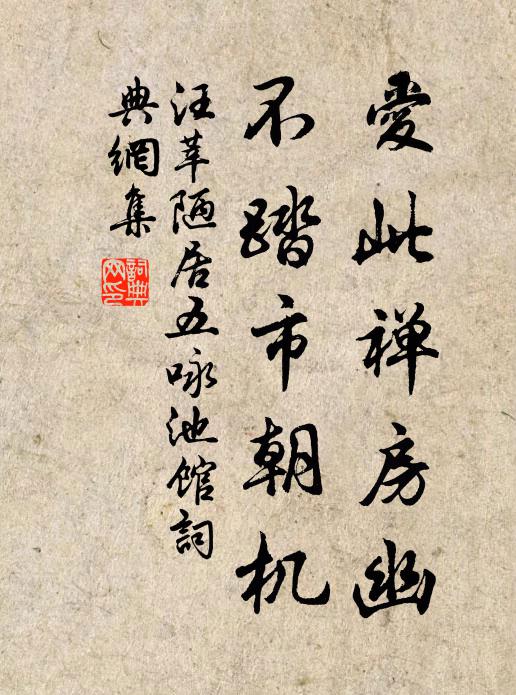 愛此禅房幽
不踏市朝机
汪莘陋居五咏池館詞
典網集
詞典
网印